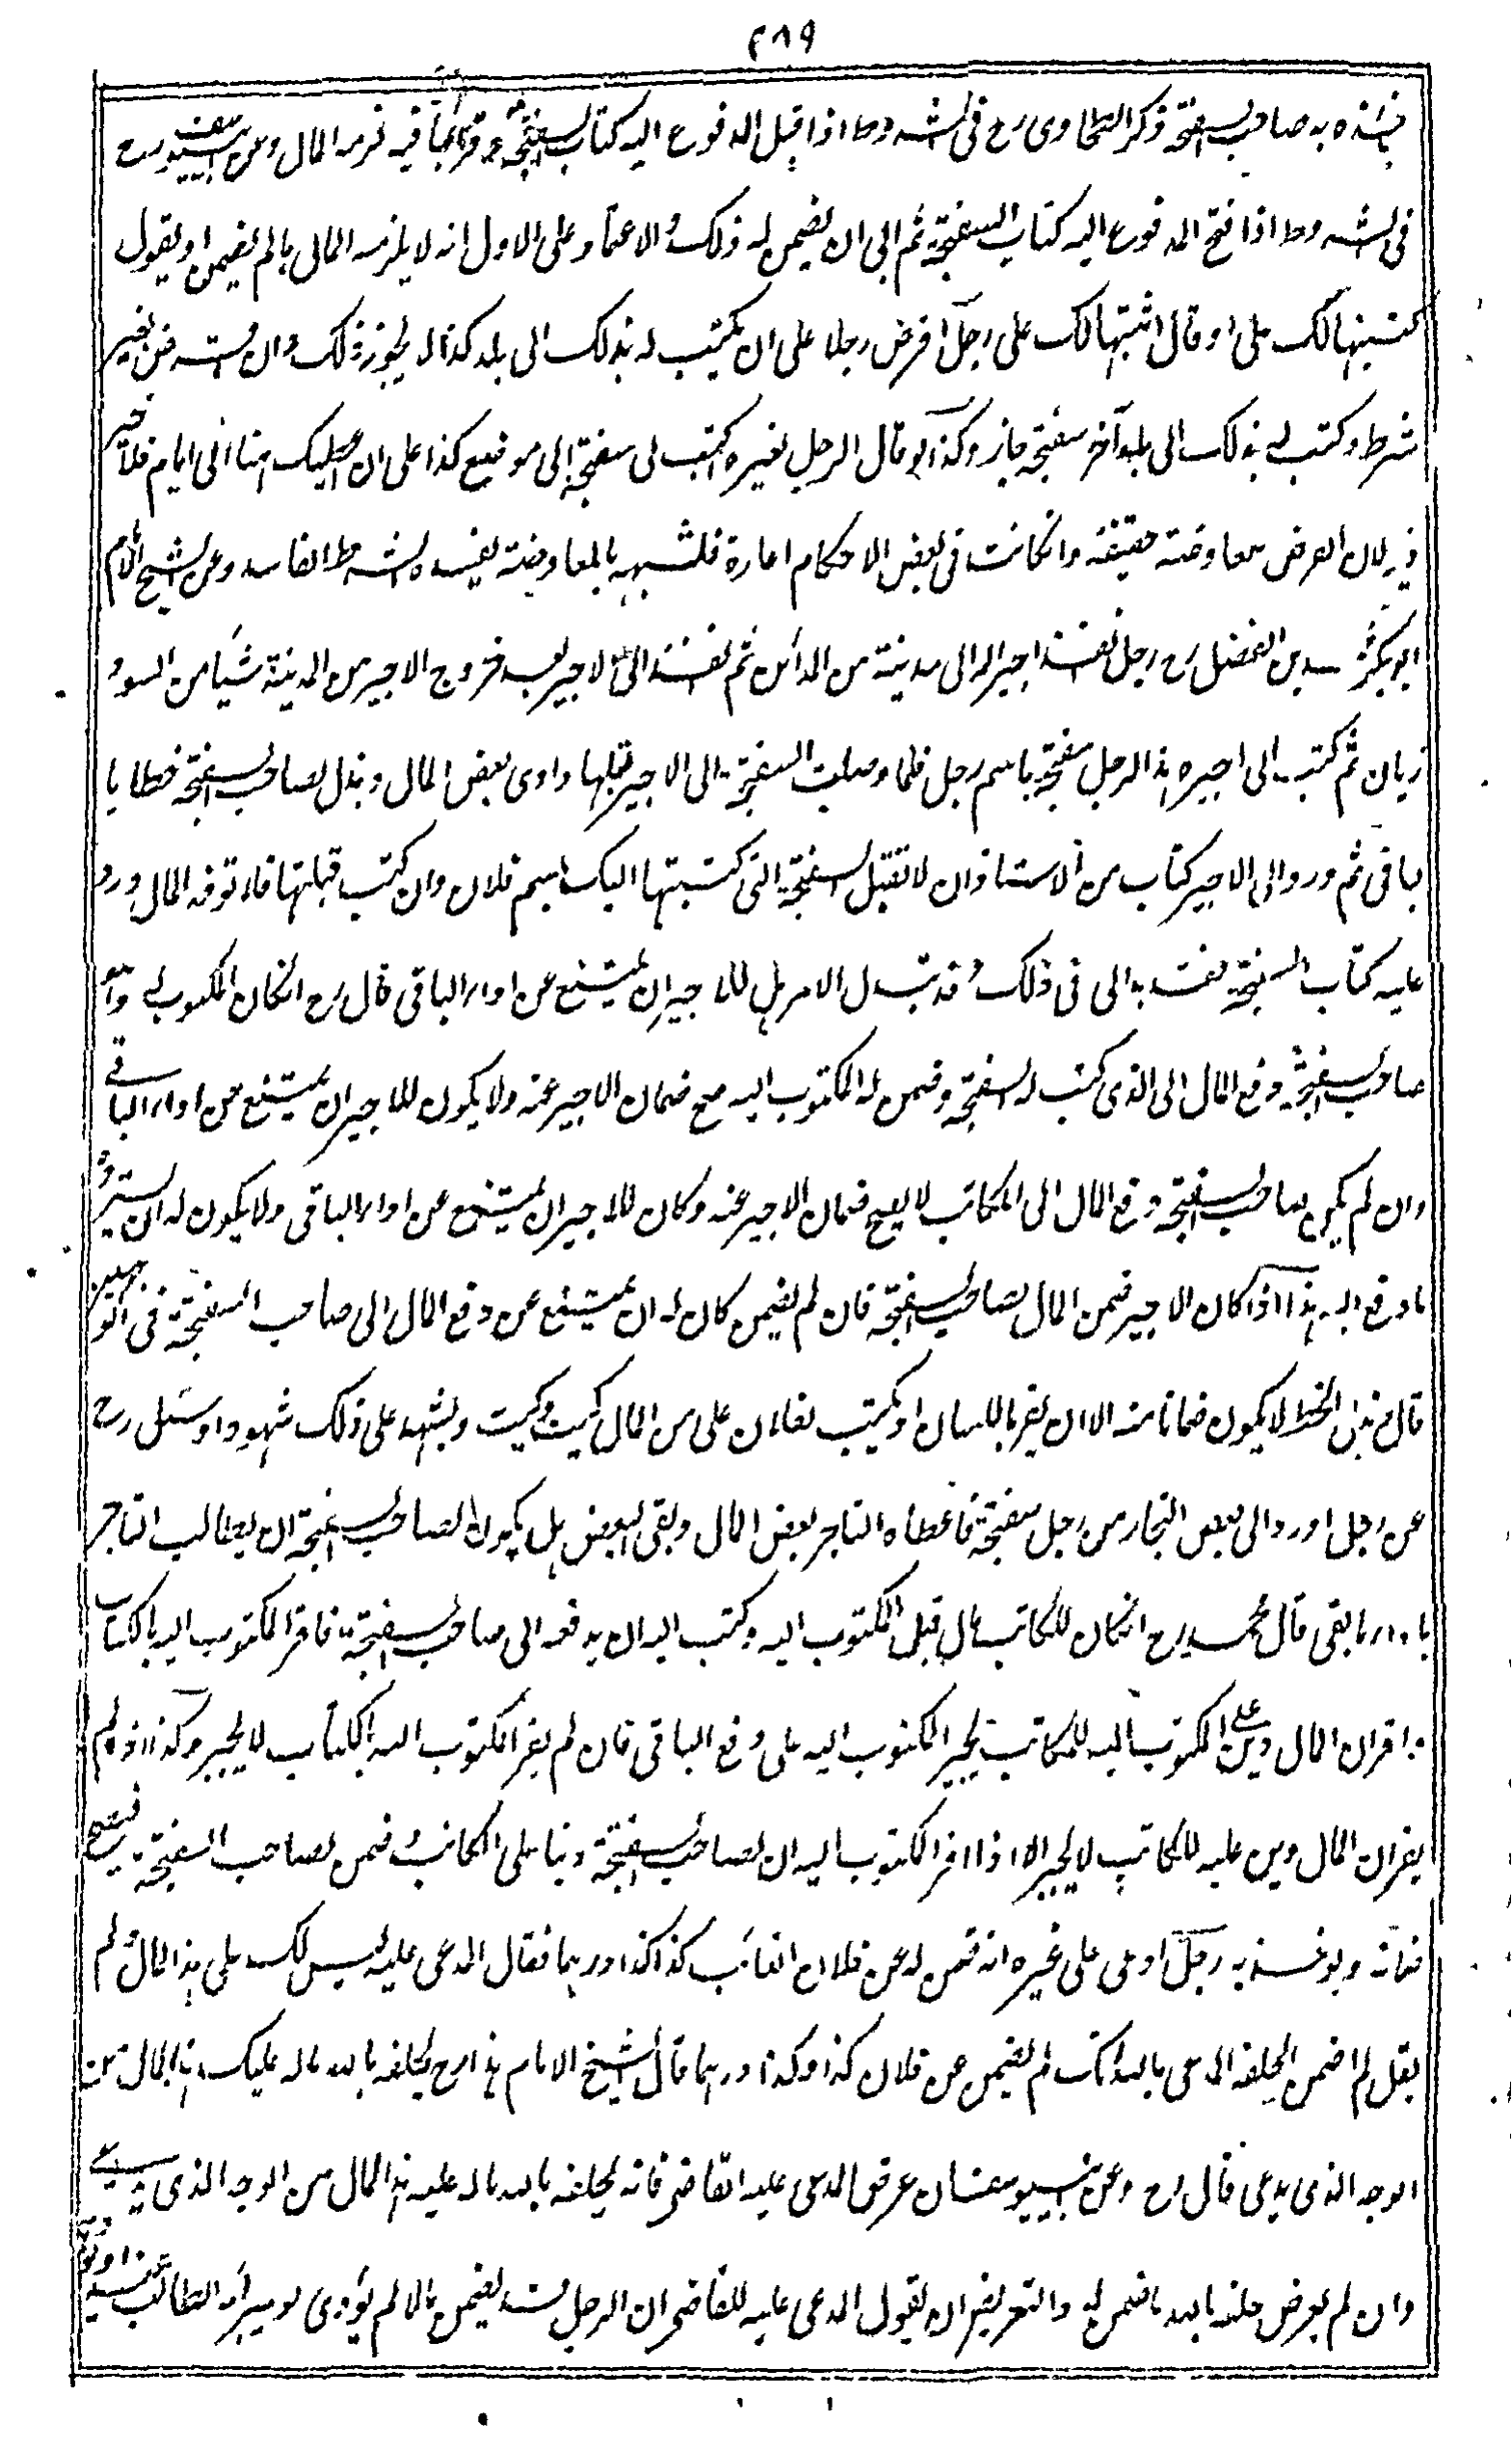 ٤٨٩
به صاحب السفتجة ذكر الطحاوي رح في الشروط اذا قبل المدفوع اليه كتاب السفتجة وقرأ ما فيه لزمه المال وعن ابي يوسف رح
في الشروط اذا فتح المدفوع اليه كتاب السفتجة ثم ابى ان يضمن له ذلك والاعتماد على الاول انه لا يلزمه المال ما لم يضمن او يقول
كتبتها لك علي او قال اثبتها لك علي رجل اقرض رجلا على ان يكتب له بذلك الى بلد كذا لا يجوز ذلك وان استقرض بغير
شرط وكتب له بذلك الى بلد آخر سفتجة جاز وكذا لو قال الرجل لغيره اكتب لي سفتجة الى موضع كذا على ان اعطيك هنا الى ايام فلا خير
فيه لان القرض معاوضة حقيقة وان كانت في بعض الاحكام اعارة فلشبهه بالمعاوضة يفسده الشرط الفاسد وعن الشيخ الامام
ابو بكر محمد بن الفضل رح رجل بعث اجيرا له الى مدينة من المدائن ثم بعث الى الاجير بعد خروج الاجير من المدينة شيأ من السو و
زيان ثم كتب الى اجيره هذا الرجل سفتجة باسم رجل فلما وصلت السفتجة الى الاجير قبلها وادى بعض المال وبذل لصاحب السفتجة خطا با
لباقي ثم ورد الى الاجير كتاب من الاستاذ ان لا تقبل السفتجة التي كتبتها اليك باسم فلان وان كنت قبلتها فلا توفه المال ورد
عليه كتاب السفتجة بعث به الي في ذلك وقد تبدل الامر هل للاجير ان يمتنع عن اداء الباقي قال رح ان كان المكتوب له وهو
صاحب السفتجة دفع المال الى الذي كتب له السفتجة وضمن له المكتوب اليه صح ضمان الاجير عنه ولا يكون للاجير ان يمتنع عن اداء الباقي
وان لم يكن صاحب السفتجة دفع المال الى الكاتب لا يصح ضمان الاجير عنه وكان للاجير ان يمتنع عن اداء الباقي ولا يكون له ان يسترد
ما دفع اليه هذا اذا كان الاجير ضمن المال لصاحب السفتجة فان لم يضمن كان له ان يمتنع عن دفع المال الى صاحب السفتجة في الوجهين
قال وبذل الخط لا يكون ضمانا منه الا ان يقر باللسان او يكتب لفلان علي من المال كيت وكيت ويشهد على ذلك شهودا وسئل رح
عن رجل اورد الى بعض التجار من رجل سفتجة فاعطاه التاجر بعض المال وبقي البعض هل يكون لصاحب السفتجة ان يطالب التاجر
باداء ما بقي قال محمد رح ان كان للكاتب مال قبل المكتوب اليه وكتب اليه ان يدفعه الى صاحب السفتجة فاقر المكتوب اليه بالكتاب
واقر ان المال دين على المكتوب اليه للكاتب يجبر المكتوب اليه على دفع الباقي فان لم يقر المكتوب اليه بالكتاب لا يجبر وكذا اذا لم
يقر ان المال دين عليه للكاتب لا يجبر الا اذا اقر المكتوب اليه ان لصاحب السفتجة دينا على الكاتب وضمن لصاحب السفتجة فيصح
ضمانه ويؤخذ به رجل ادعى على غيره انه ضمن له عن فلان الغائب كذا كذا درهما فقال المدعى عليه ليس لك علي هذا المال ولم
يقل لم اضمن يحلفه المدعي بالله انك لم تضمن عن فلان كذا وكذا درهما قال الشيخ الامام هذا رح يحلفه بالله ما له عليك هذا المال من
الوجه الذي يدعي قال رح وعن ابي يوسف ان عرض المدعى عليه القاضي فانه يحلفه بالله ما له عليه هذا المال من الوجه الذي يدعي
وان لم يعرض حلفه بالله ما ضمن له والتعريض ان يقول المدعى عليه للقاضي ان الرجل قد يضمن مالا ثم يؤدي او يبرأه الطالب